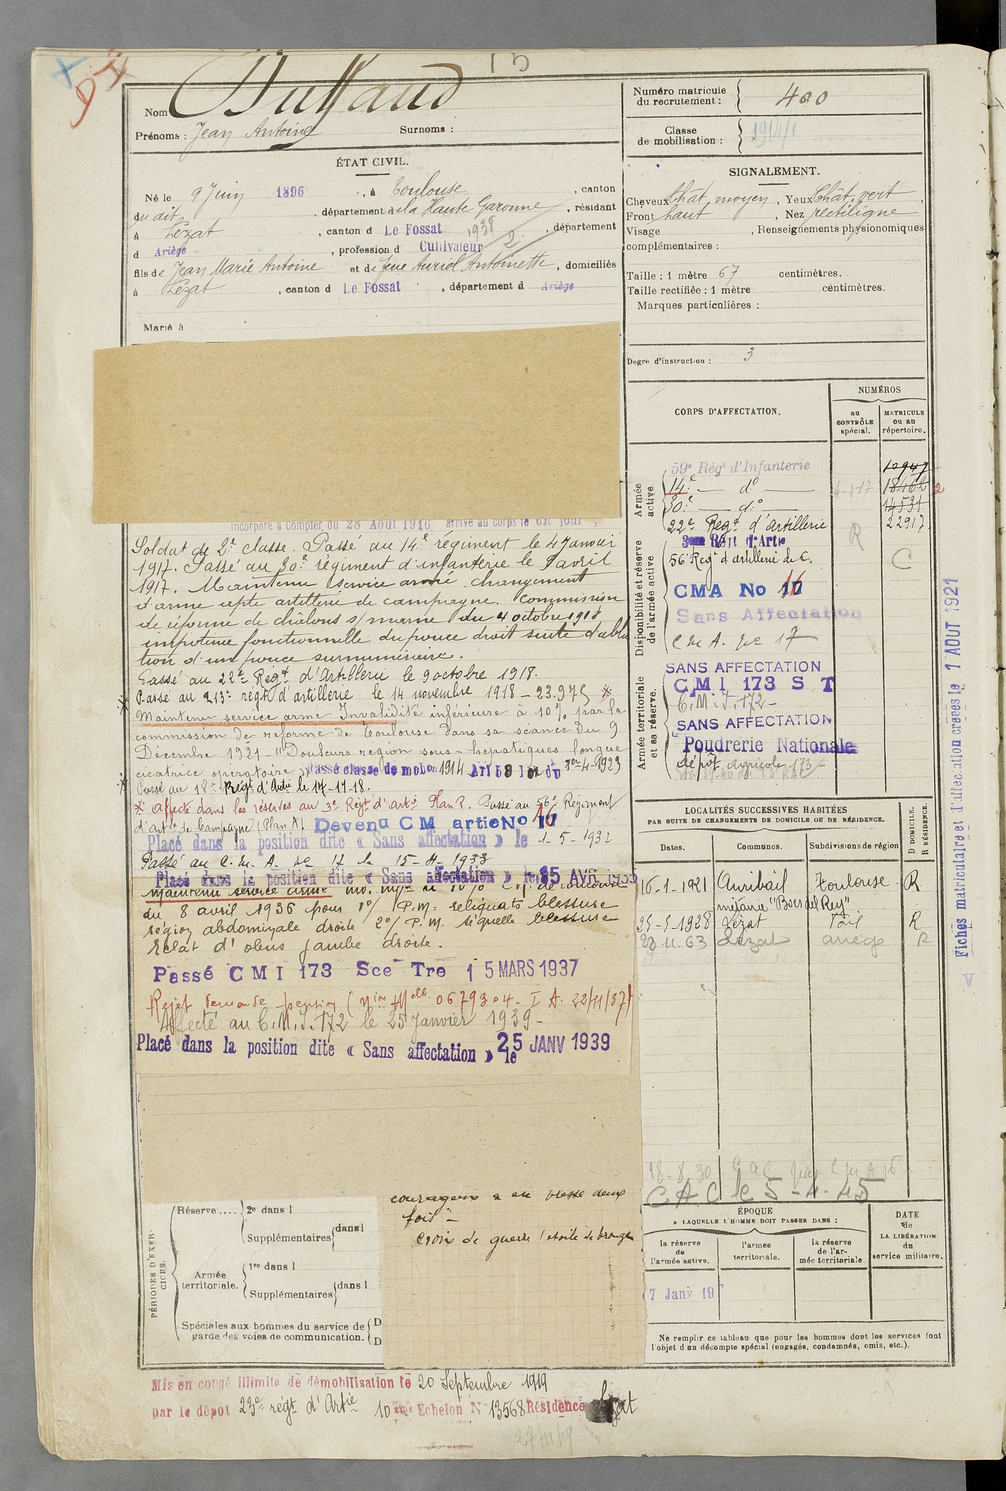 15
Nom Duffaud
Prénoms : Jean Antoine Surnoms :
ÉTAT CIVIL.
Né le 9 Juin 1896, à Toulouse, canton
du dit, département de la Haute Garonne, résidant
à Lézat, canton d Le Fossat 1938, département
d Ariège, profession d Cultivateur 2
fils de Jean Marie Antoine et de feue Auriol Antoinette, domiciliés
à Lézat, canton d Le Fossat, département d Ariège
Marié à
Numéro matricule du recrutement : 400
Classe de mobilisation : 1914
SIGNALEMENT.
Cheveux Chât. moyen, Yeux Chât. vert
Front haut, Nez rectiligne
Visage , Renseignements physionomiques
complémentaires :
Taille : 1 mètre 67 centimètres.
Taille rectifiée : 1 mètre centimètres.
Marques particulières :
Degré d'instruction : 3
CORPS D'AFFECTATION.
NUMÉROS
au CONTRÔLE spécial.
MATRICULE ou au répertoire.
Armée active
59e Régt d'Infanterie 10947
14e — do — 18462
30e — do 14531
22e Regt d'artillerie 22917
Disponibilité et réserve de l'armée active
3eme Régt d'Artie R
56e Regt d'artillerie de C. C
CMA No 17 16
Sans Affectation
C.M.A. No 17
Armée territoriale et sa réserve.
SANS AFFECTATION
CMI 173 S T
C.M.I. 172 -
SANS AFFECTATION
Poudrerie Nationale
dépôt agricole 173 -
Incorporé à compter du 28 Août 1916 arrivé au corps le dit jour
Soldat de 2e classe. Passé au 14e régiment le 4 janvier
1917. Passé au 30e régiment d'infanterie le 1 avril
1917. Maintenu service armé. changement
d'arme apte artillerie de campagne. Commission
de réforme de Châlons s/marne du 4 octobre 1918
impotence fonctionnelle du pouce droit suite d'abla
tion d'un pouce surnuméraire.
Passé au 22e Régt d'Artillerie le 9 octobre 1918.
Passé au 213e régt d'artillerie le 14 novembre 1918 - 23.975
Maintenu service armé Invalidité inférieure à 10% par la
commission de réforme de Toulouse dans sa séance du 9
Décembre 1921 - "Douleurs région sous-hépatiques longue
cicatrice opératoire" Passé classe de mob 1914 Art 58 loi du 1er-4-1923
Passé au 18e Régt d'Artie le 17-17-18.
Affecté dans les réserves au 3e Régt d'artie Plan P. Passé au 56e Régiment
d'artie de Campagne (Plan A) Devenu CM artie No 17 16
Placé dans la position dite « Sans affectation » le 1-5-1932
Passé au C.M.A. No 17 le 15-4-1933
Placé dans la position dite « Sans affectation » le 15 AVR. 1935
Maintenu service armé
du 8 avril 1936 pour 1o/ P.M. reliquats blessure
région abdomiyale droite 2o/ P.M. séquelle blessure
éclat d'obus jambe droite.
Passé CMI 173 Sce Tre 15 MARS 1937
Rejet demande pension 22/11/37
Affecté au C.M.I. 172 le 25 Janvier 1939 -
Placé dans la position dite « Sans affectation » le 25 JANV 1939
LOCALITÉS SUCCESSIVES HABITÉES
PAR SUITE DE CHANGEMENTS DE DOMICILE OU DE RÉSIDENCE.
Dates. Communes. Subdivisions de région D DOMICILE. R RÉSIDENCE.
16-1-1921 Auribail Toulouse R
métairie "Bois del Rey"
25-5-1928 Lézat Foix R
29-11-63 Lezat ariège R
CAC le 5-4-45
courageux a été blessé deux
fois" -
Croix de guerre (étoile de bronze
PÉRIODES D'EXERCICES.
Réserve .... 2e dans l
Supplémentaires dans l
Armée territoriale. 1re dans l
Supplémentaires dans l
Spéciales aux hommes du service de garde des voies de communication. D D
ÉPOQUE
A LAQUELLE L'HOMME DOIT PASSER DANS :
la réserve de l'armée active.
l'armée territoriale.
la réserve de l'armée territoriale.
DATE de LA LIBÉRATION du service militaire.
7 Janv 19
Ne remplir ce tableau que pour les hommes dont les services font
l'objet d'un décompte spécial (engagés, condamnés, omis, etc.).
Mis en congé illimité de démobilisation le 20 Septembre 1919
par le dépôt 23e régt d'Artie 10eme Echelon No 13568 Résidence Lézat
Fiches matriculaire et d'affectation créées le 1 AOUT 1921